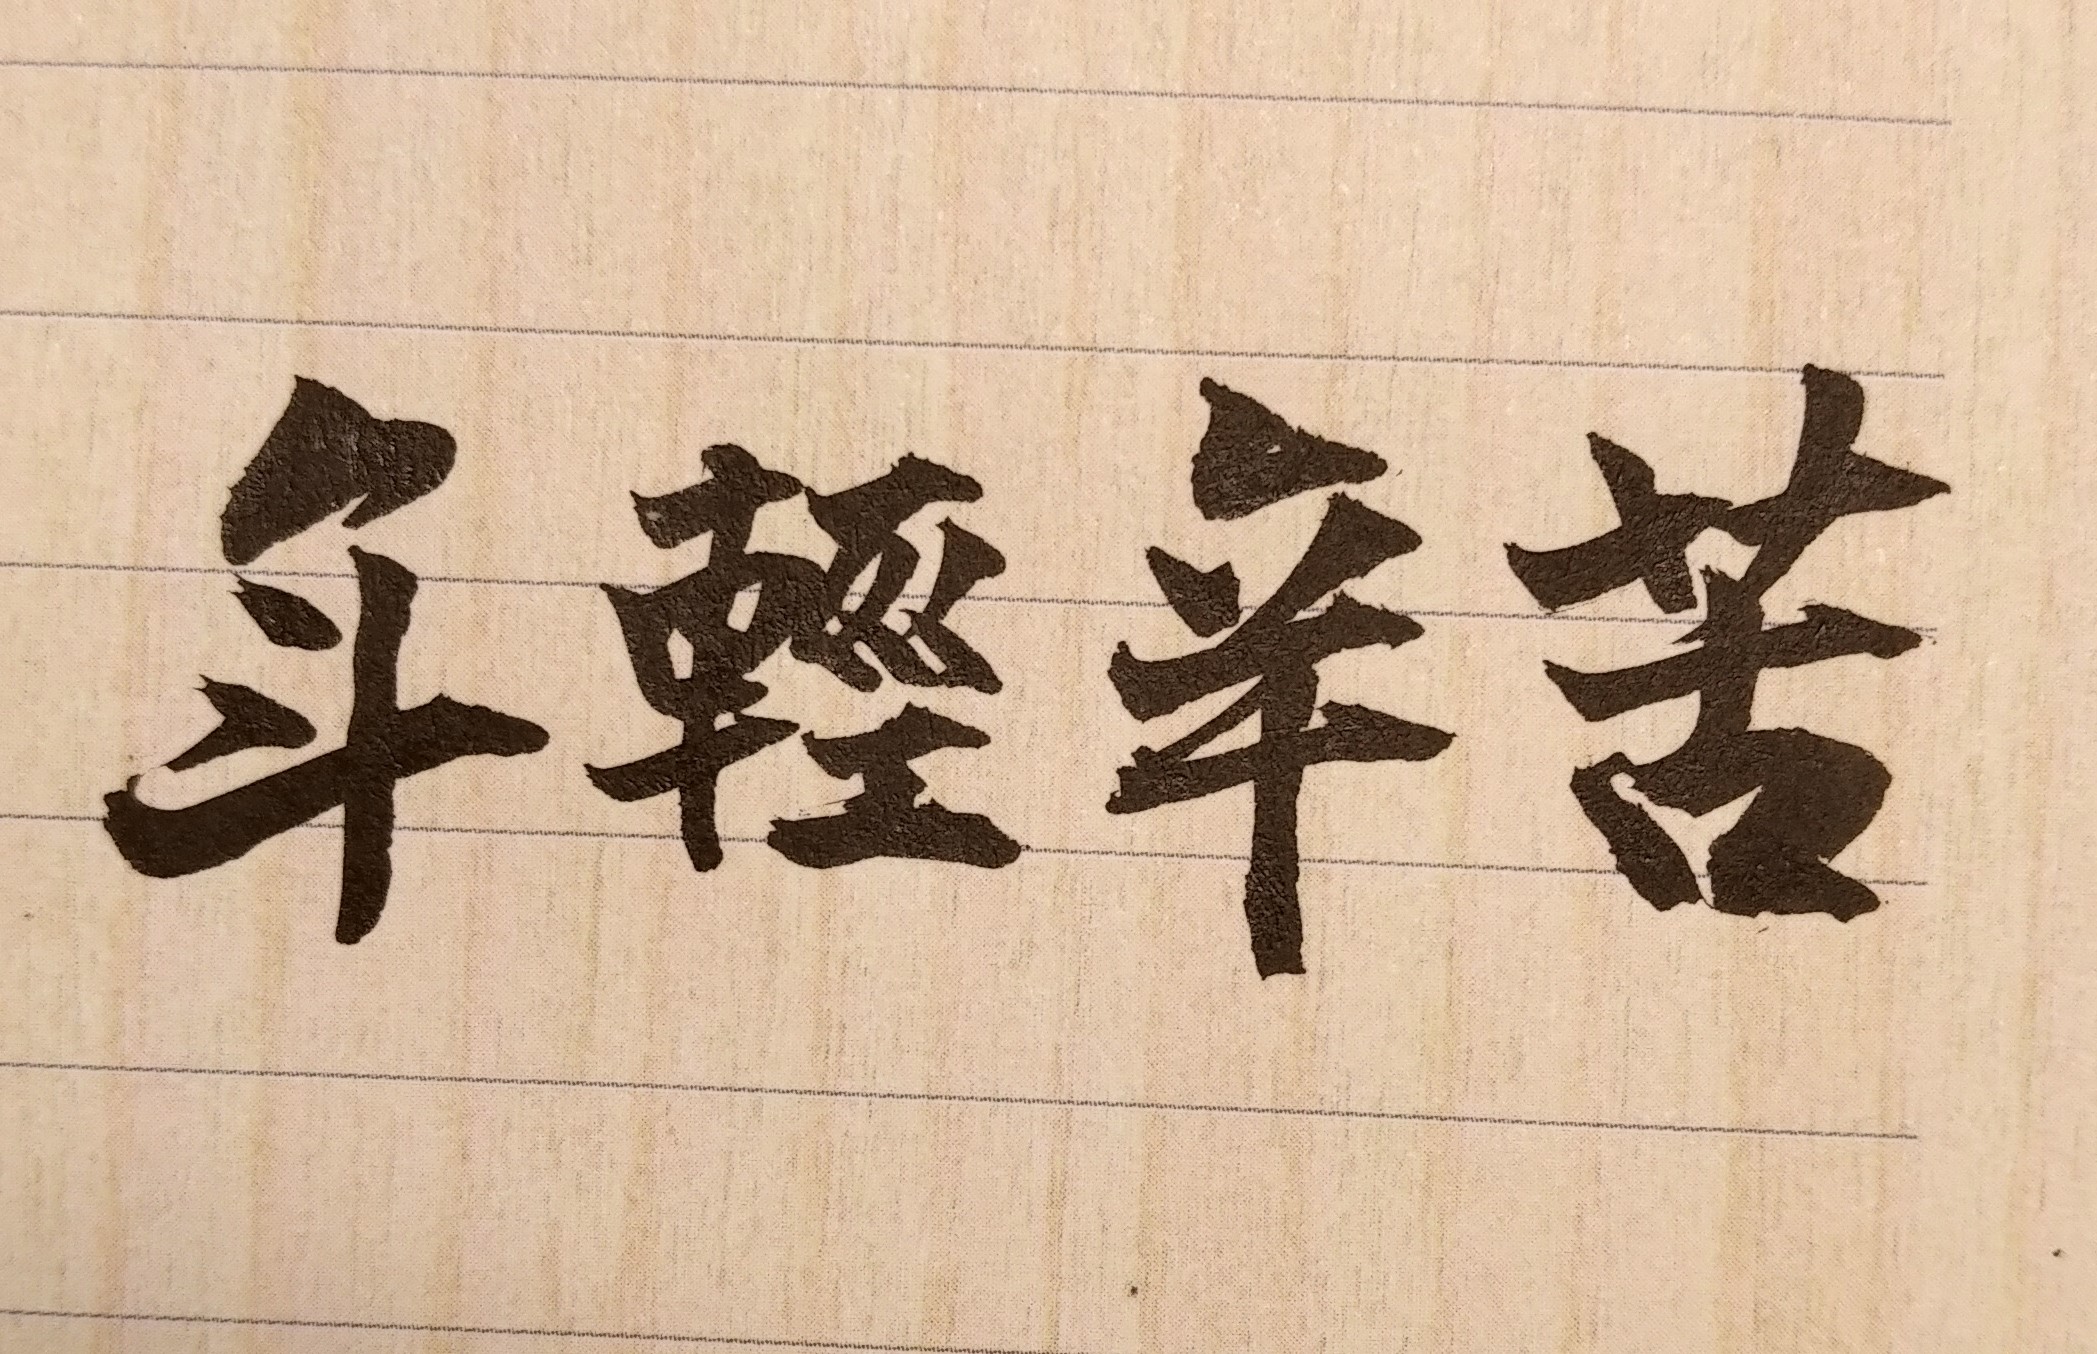 年輕辛苦